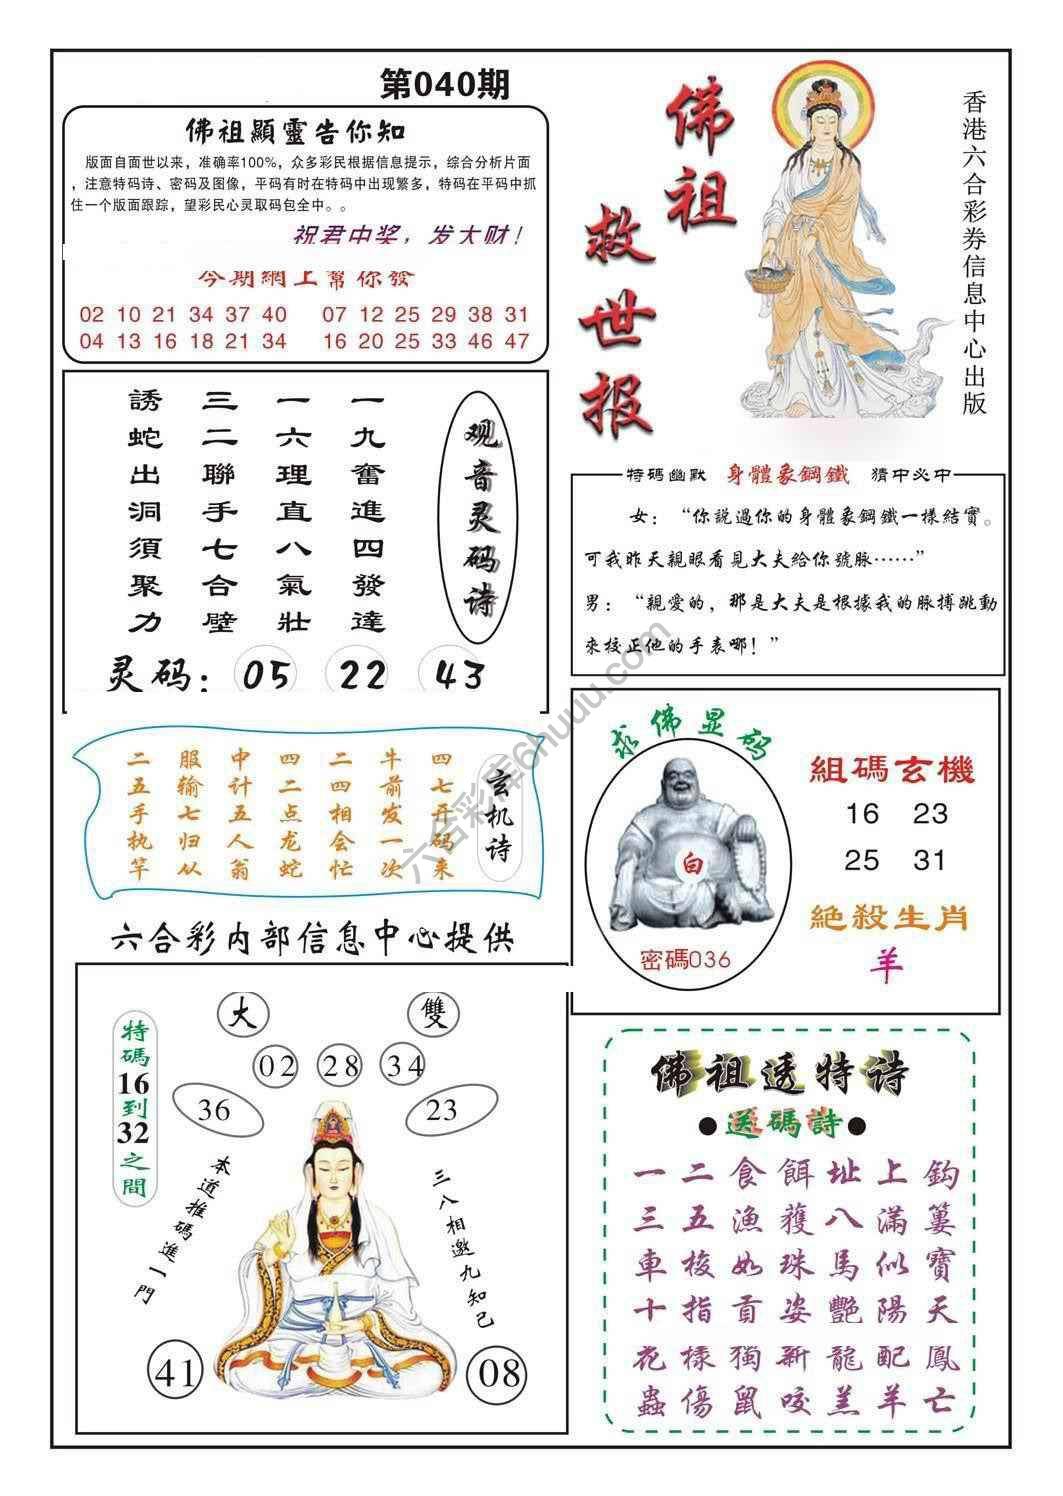 第040期
佛祖顯靈告你知
版面自面世以来，准确率100%，众多彩民根据信息提示，综合分析片面
，注意特码诗、密码及图像，平码有时在特码中出现繁多，特码在平码中抓
住一个版面跟踪，望彩民心灵取码包全中。。
祝君中奖，发大财！
今期網上幫你發
02 10 21 34 37 40 07 12 25 29 38 31
04 13 16 18 21 34 16 20 25 33 46 47
佛祖
救世报
香港六合彩券信息中心出版
观音灵码诗
一九奮進四發達
一六理直八氣壯
三二聯手七合壁
誘蛇出洞須聚力
灵码：05 22 43
特码幽默 身體象鋼鐵 猜中必中
女：“你説過你的身體象鋼鐵一樣結實。
可我昨天親眼看見大夫給你號脉……”
男：“親愛的，那是大夫是根據我的脉搏跳動
來校正他的手表哪！”
玄机诗
四七开码来
牛前发一次
二四相会忙
四二点龙蛇
中计五人翁
服输七归从
二五手执竿
求佛显码
白
密碼036
組碼玄機
16 23
25 31
絕殺生肖
羊
六合彩内部信息中心提供
大 雙
02 28 34
36 23
特碼16到32之間
本道推碼進一門
三八相邀九知己
41 08
佛祖透特诗
●送碼詩●
一二食餌址上鈎
三五漁獲八滿簍
車梭如珠馬似寶
十指貢姿艷陽天
花樣獨新龍配鳳
蟲傷鼠咬羔羊亡
六合彩库6huuu.com